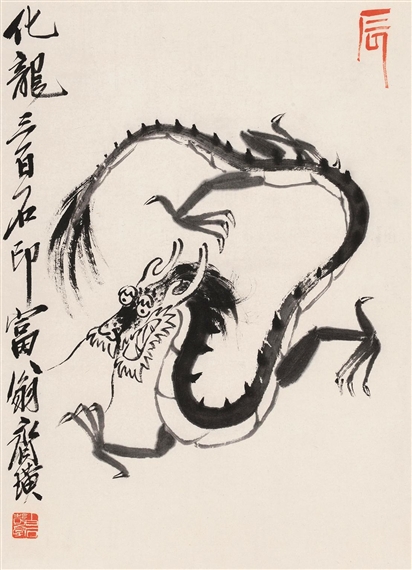 辰
化龍三百石印富翁齊璜